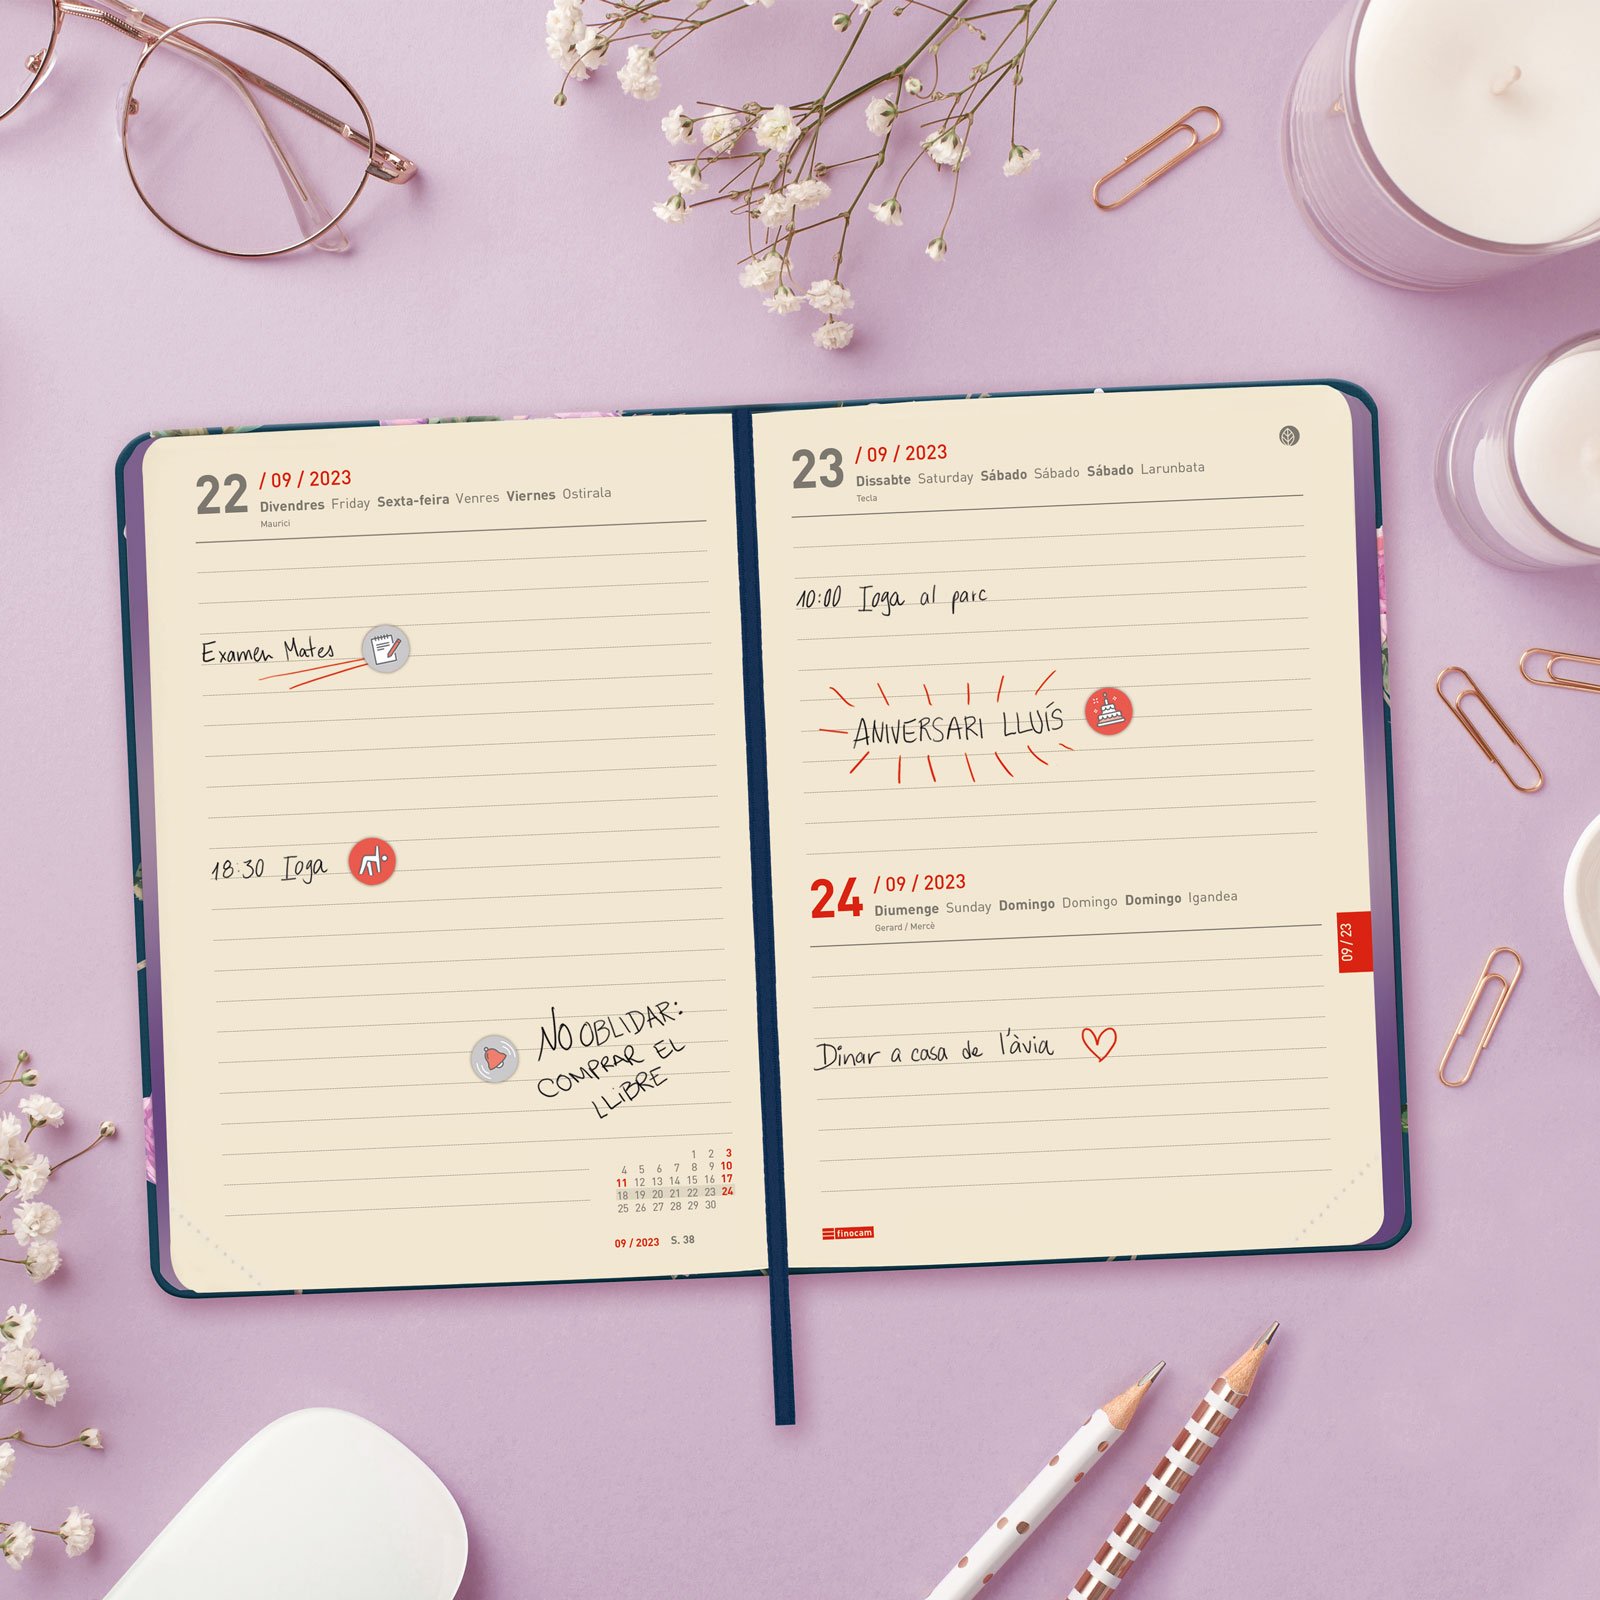 22 / 09 / 2023
Divendres Friday Sexta-feira Venres Viernes Ostirala
Maurici
Examen Mates
18:30 Ioga
NO OBLIDAR:
COMPRAR EL
LLIBRE
1 2 3
4 5 6 7 8 9 10
11 12 13 14 15 16 17
18 19 20 21 22 23 24
25 26 27 28 29 30
09 / 2023 S. 38
23 / 09 / 2023
Dissabte Saturday Sábado Sábado Sábado Larunbata
Tecla
10:00 Ioga al parc
ANIVERSARI LLUÍS
24 / 09 / 2023
Diumenge Sunday Domingo Domingo Domingo Igandea
Gerard / Mercè
09 / 23
Dinar a casa de l'àvia
finocam